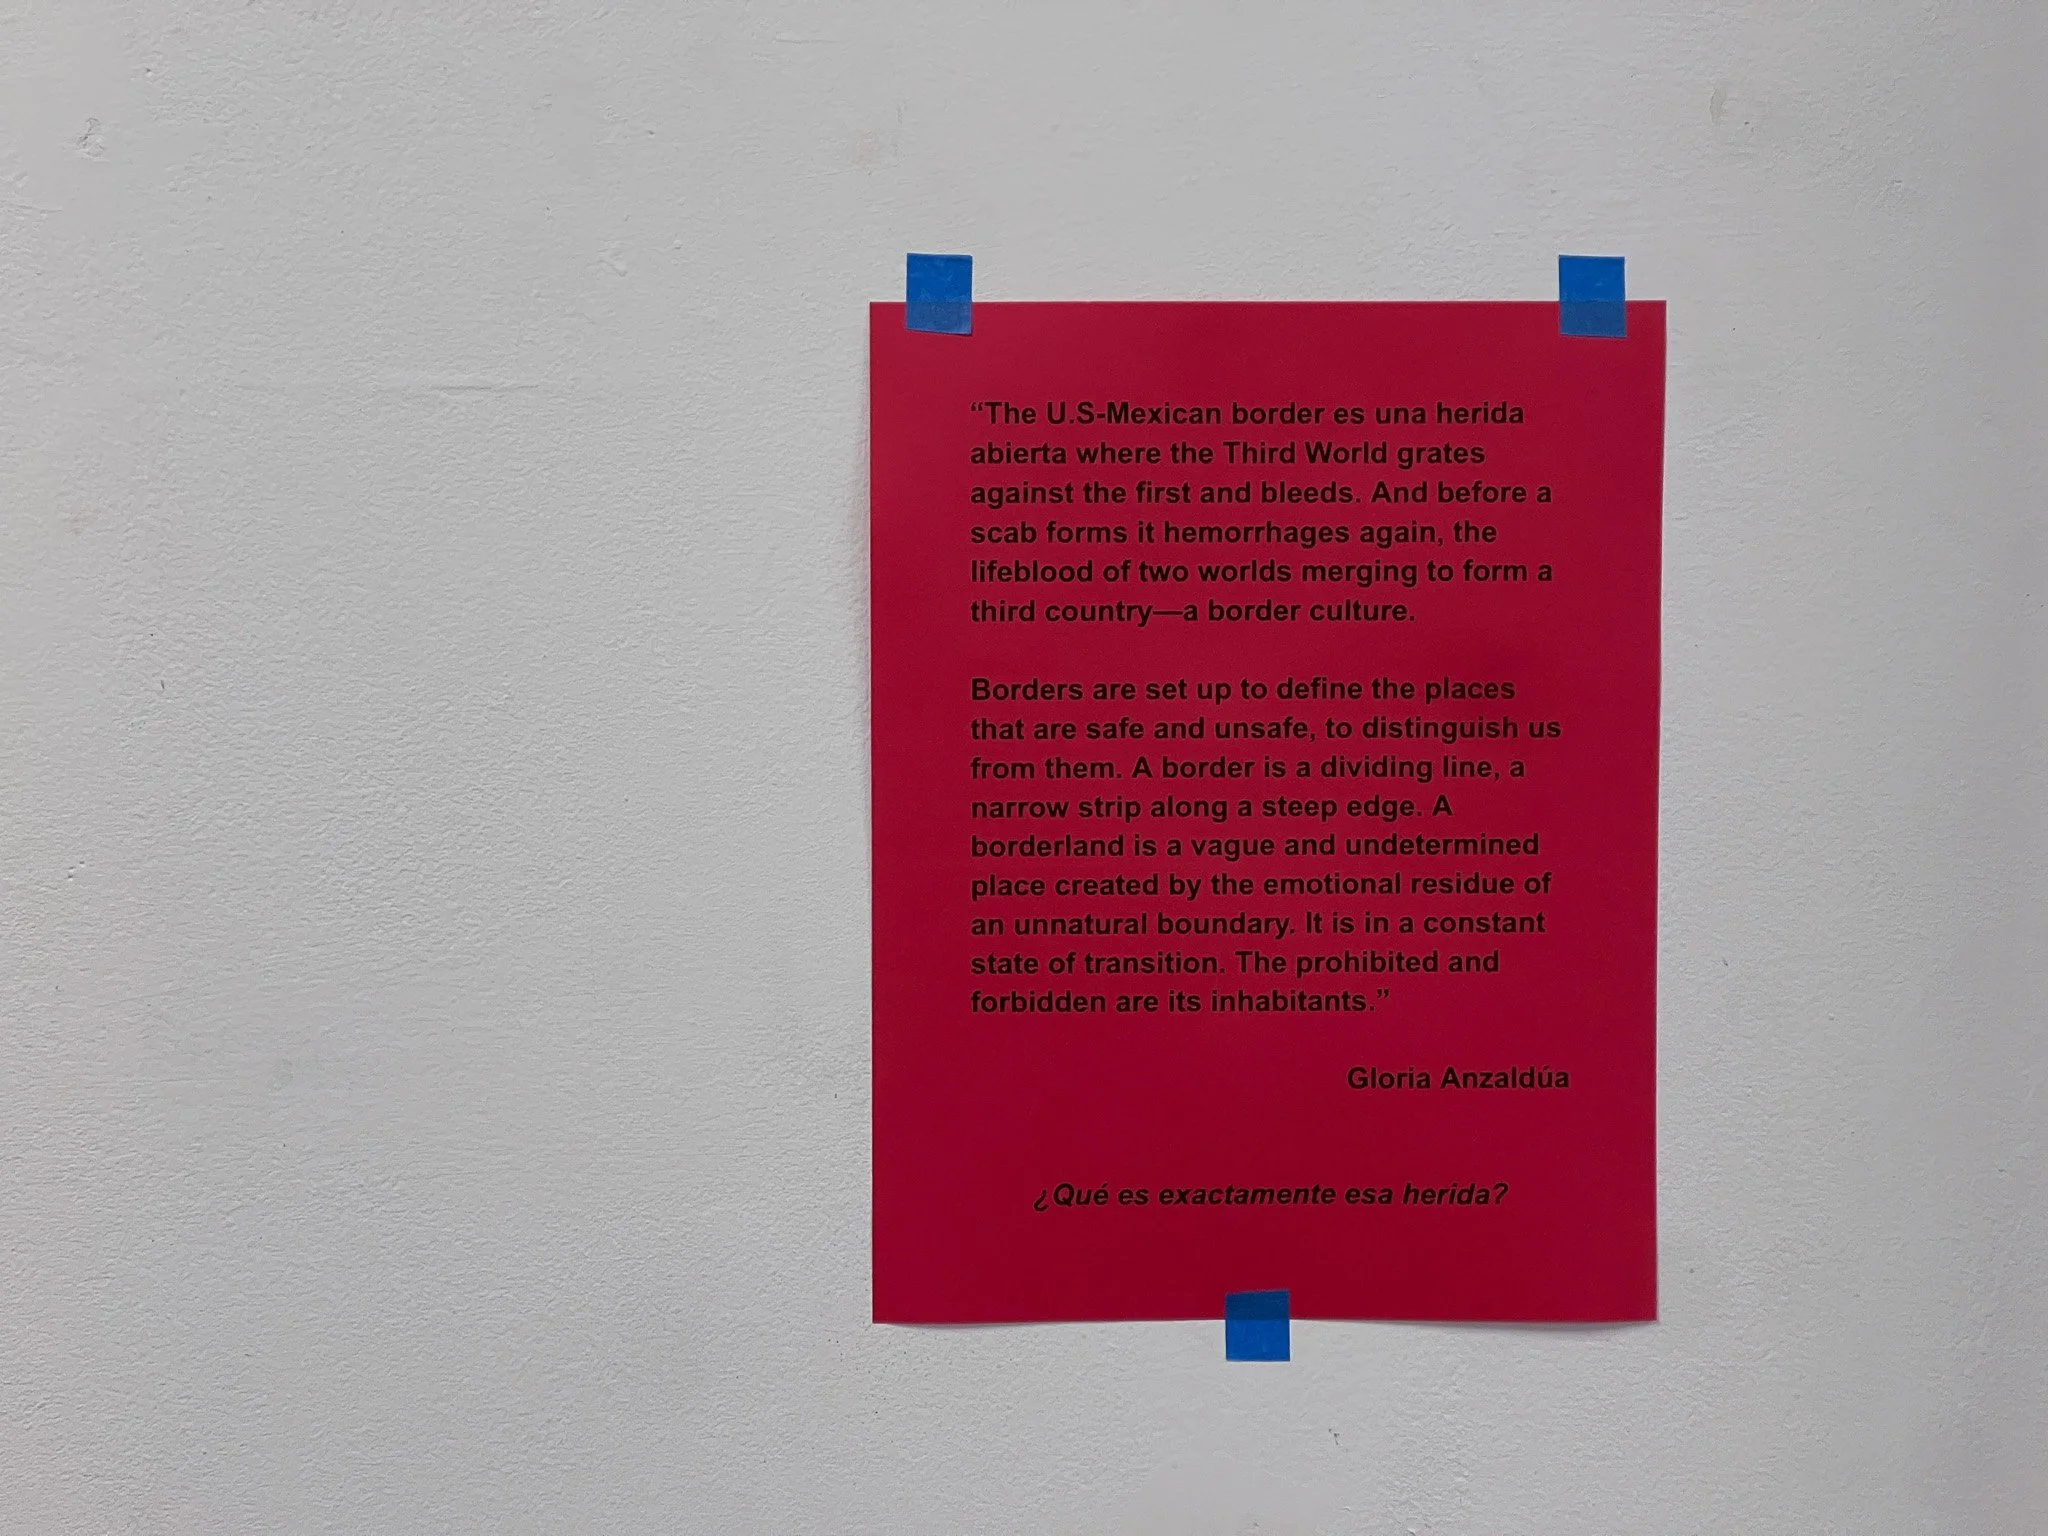 “The U.S-Mexican border es una herida
abierta where the Third World grates
against the first and bleeds. And before a
scab forms it hemorrhages again, the
lifeblood of two worlds merging to form a
third country—a border culture.
Borders are set up to define the places
that are safe and unsafe, to distinguish us
from them. A border is a dividing line, a
narrow strip along a steep edge. A
borderland is a vague and undetermined
place created by the emotional residue of
an unnatural boundary. It is in a constant
state of transition. The prohibited and
forbidden are its inhabitants.”
Gloria Anzaldúa
¿Qué es exactamente esa herida?